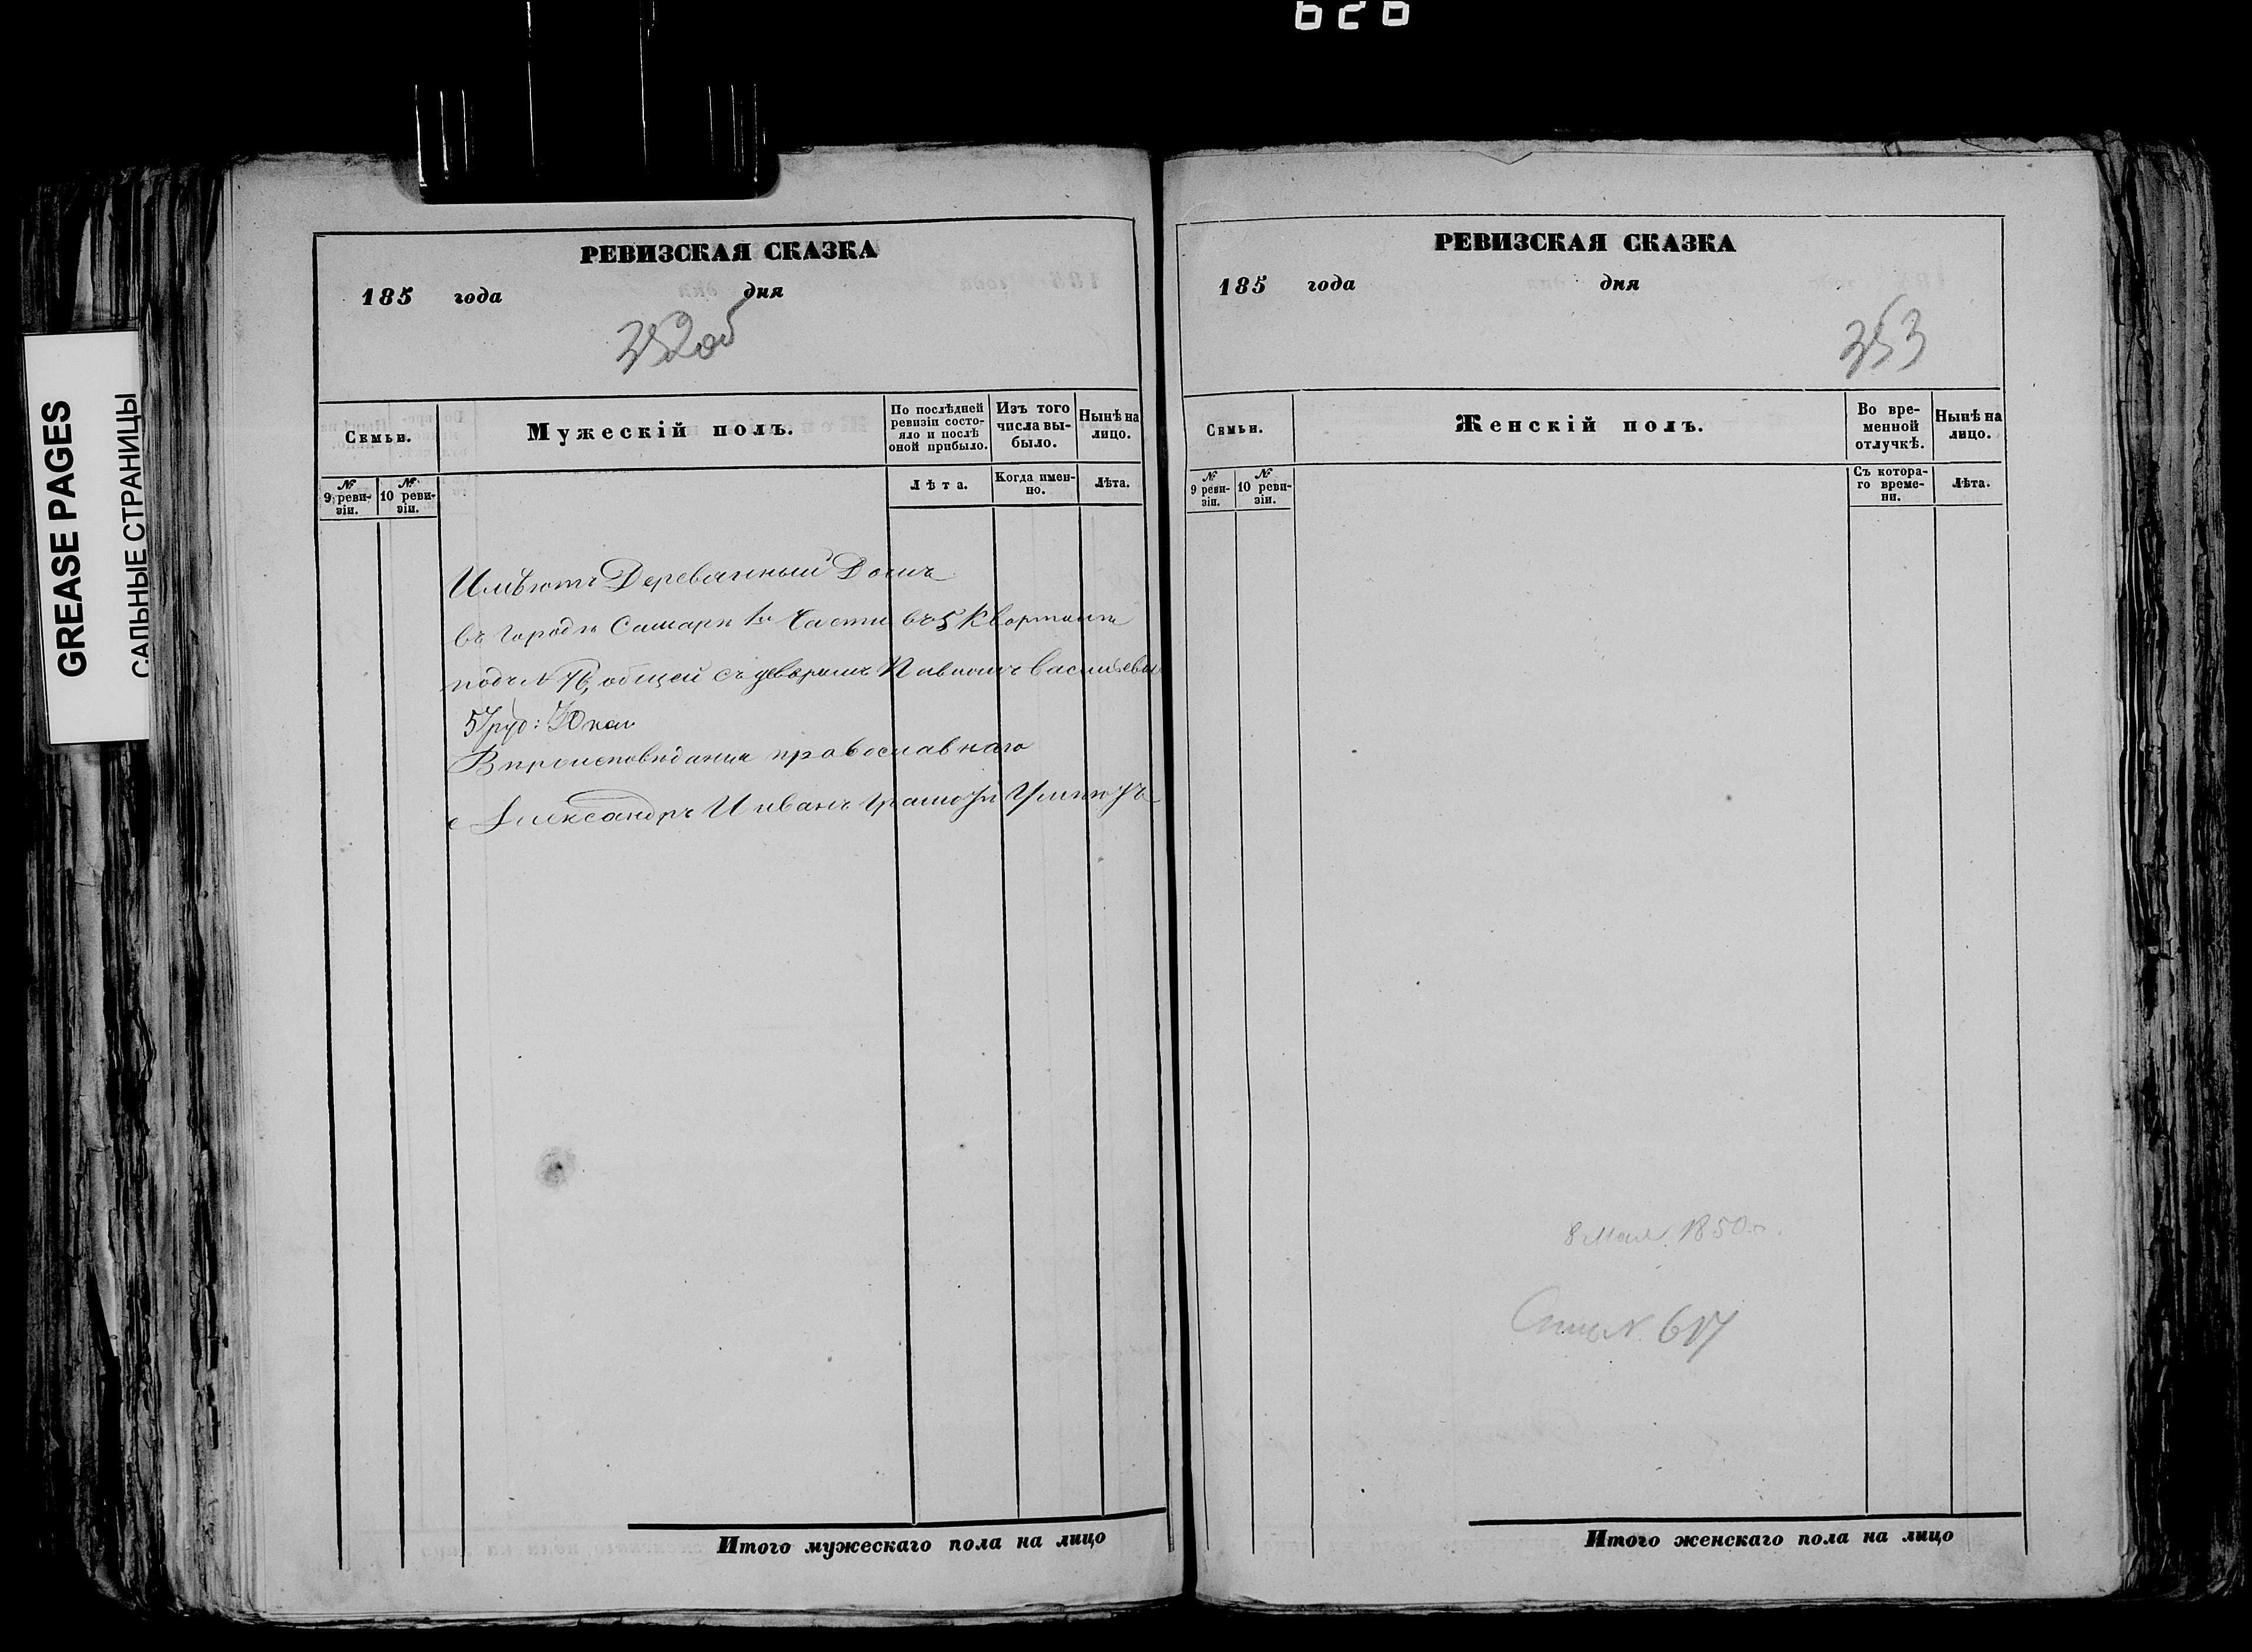 626
GREASE PAGES
САЛЬНЫЕ СТРАНИЦЫ
РЕВИЗСКАЯ СКАЗКА
185 года дня
352об
Семьи.
Мужескій полъ.
По послѣдней ревизіи состо-яло и послѣ оной прибыло.
Изъ того числа вы-было.
Нынѣ на лицо.
№ 9 реви-зіи.
№ 10 реви-зіи.
Лѣта.
Когда имен-но.
Лѣта.
Имѣютъ Деревянный Домъ
въ городѣ Самарѣ 1й Части въ 5 Кварталѣ
подъ № 76, общей съ
57 руб:
Вѣроисповѣданія православнаго
Александръ И иванъ грамотѣ Умѣютъ
Итого мужескаго пола на лицо
РЕВИЗСКАЯ СКАЗКА
185 года дня
353
Семьи.
Женскій полъ.
Во вре-менной отлучкѣ.
Нынѣ на лицо.
№ 9 реви-зіи.
№ 10 реви-зіи.
Съ котора-го време-ни.
Лѣта.
8 Мая 1850 г.
№ 617
Итого женскаго пола на лицо